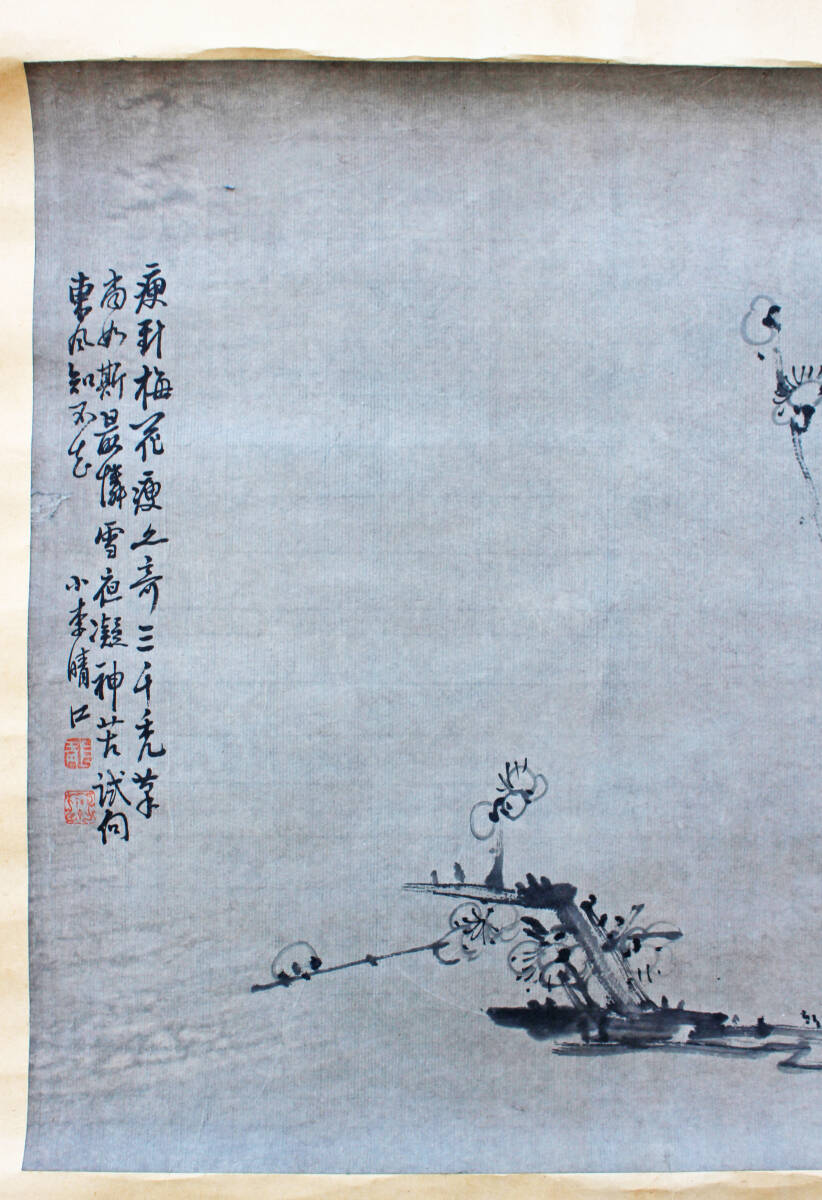 瘦對梅花瘦亦奇三千禿筆
尚如斯最憐雪夜凝神苦試向
東風知不知
小李晴江